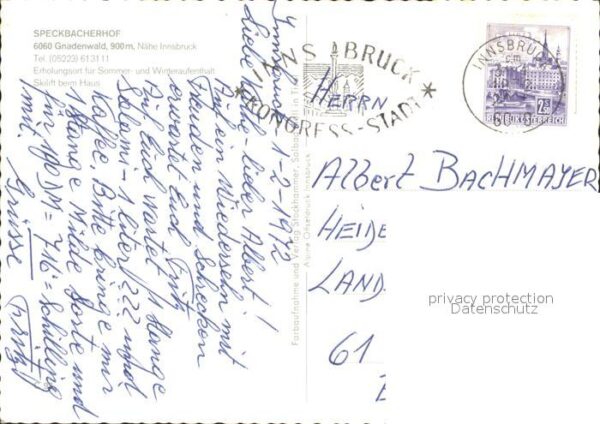 SPECKBACHERHOF
6060 Gnadenwald, 900m, Nähe Innsbruck
Tel. (05223) 613111
Erholungsort für Sommer- und Winteraufenthalt
Skilift beim Haus
Innsbruck 1-2-1972
Liebe - lieber Albert!
Auf ein Wiedersehn mit
Freuden und Schrecken
erwartet Euch Fritz
Auf Euch wartet 1 Stange
Salami - 1 liter ??? und
Kaffee. Bitte bringe mir
1 Stange Milde Sorte und
mit. für 100 DM = 716 Schilling
Grüsse Fritz
Farbaufnahme und Verlag Stockhammer, Solbad Hall in Tirol
Alpine Offsetdruck Innsbruck
INNSBRUCK
KONGRESS-STADT
INNSBRUCK
REPUBLIK ÖSTERREICH
HERRN
Albert BACHMAYER
HEIDE
LAND
61
privacy protection
Datenschutz